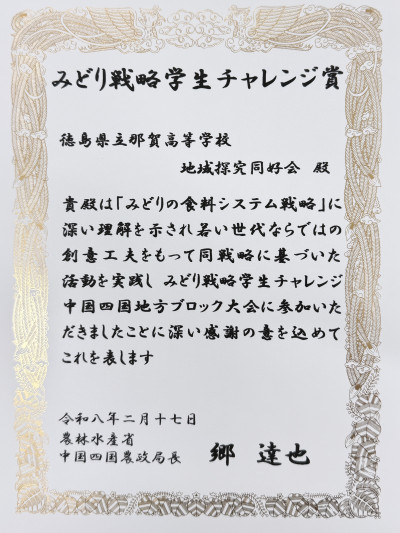 みどり戦略学生チャレンジ賞
徳島県立那賀高等学校
地域探究同好会 殿
貴殿は「みどりの食料システム戦略」に
深い理解を示され若い世代ならではの
創意工夫をもって同戦略に基づいた
活動を実践し みどり戦略学生チャレンジ
中国四国地方ブロック大会に参加いた
だきましたことに深い感謝の意を込めて
これを表します
令和八年二月十七日
農林水産省
中国四国農政局長 郷 達也